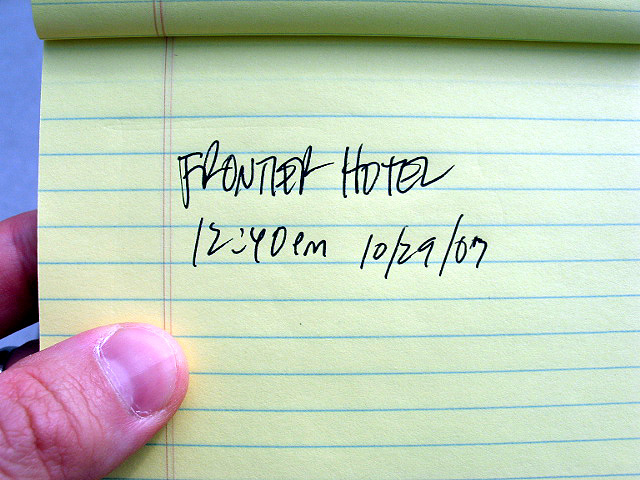 FRONTIER HOTEL
12:40pm 10/29/07